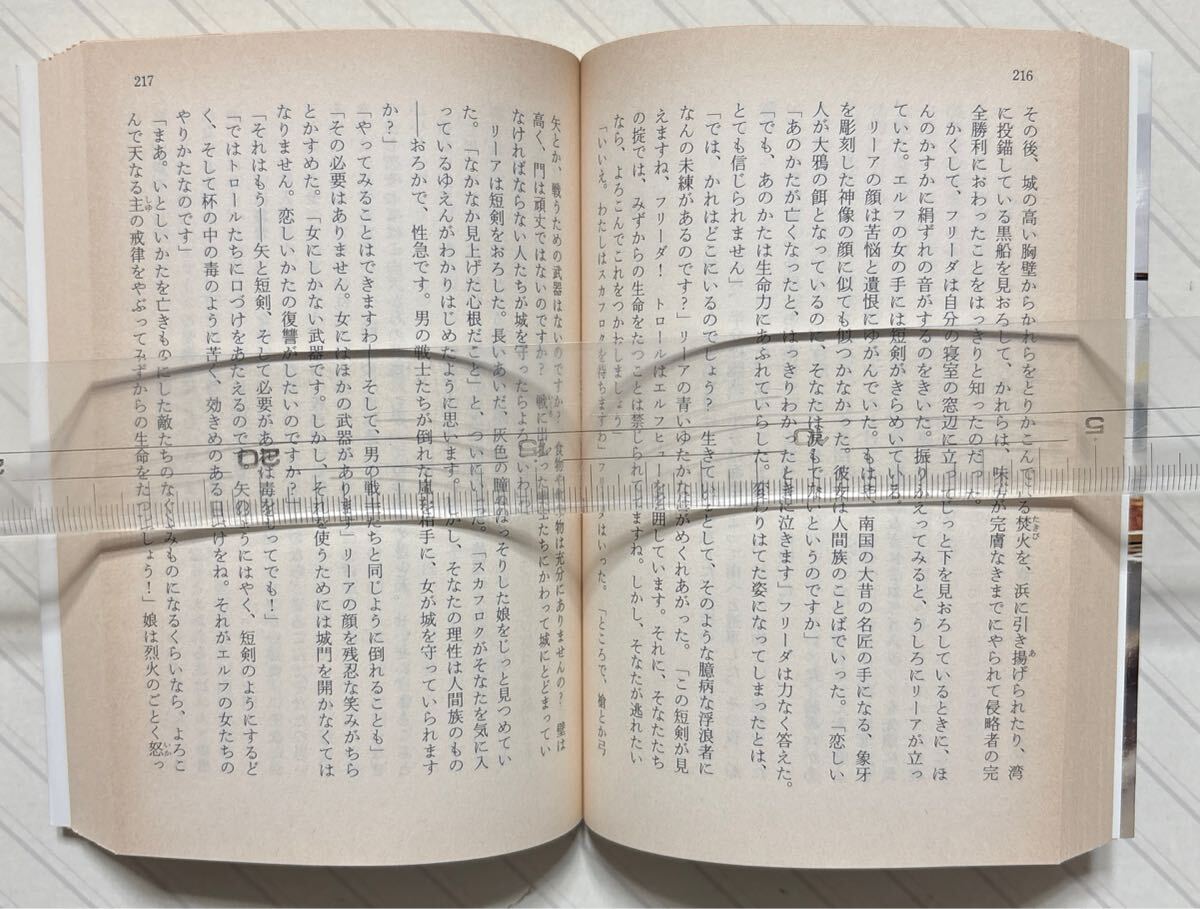 216
その後、城の高い胸壁からかれらをとりかこんでいる焚火を、浜に引き揚げられたり、湾
に投錨している黒船を見おろして、かれらは、味方が完膚なきまでにやられて侵略者の完
全勝利におわったことをはっきりと知ったのだった。
かくして、フリーダは自分の寝室の窓辺に立ってじっと下を見おろしているときに、ほ
んのかすかに絹ずれの音がするのをきいた。振りかえってみると、うしろにリーアが立っ
ていた。エルフの女の手には短剣がきらめいている。
リーアの顔は苦悩と遺恨にゆがんでいた。もはや、南国の大昔の名匠の手になる、象牙
を彫刻した神像の顔に似ても似つかなかった。彼女は人間族のことばでいった。「恋しい
人が大鴉の餌となっているのに、そなたは涙もでないというのですか」
「あのかたが亡くなったと、はっきりわかったときに泣きます」フリーダは力なく答えた。
「でも、あのかたは生命力にあふれていらした。変わりはてた姿になってしまったとは、
とても信じられません」
「では、かれはどこにいるのでしょう? 生きているとして、そのような臆病な浮浪者に
なんの未練があるのです?」リーアの青いゆたかな
がめくれあがった。「この短剣が見
えますね、フリーダ! トロールはエルフヒューを包囲しています。それに、そなたたち
の掟では、みずからの生命をたつことは禁じられていますね。しかし、そなたが逃れたい
なら、よろこんでこれをつかわしましょう」
「いいえ。わたしはスカフロクを待ちますわ」フリーダはいった。「ところで、槍とか弓
217
矢とか、戦うための武器はないのですか? 食物や
物は充分にありませんの? 壁は
高く、門は頑丈ではないのですか? 戦に出
った
たちにかわって城にとどまってい
なければならない人たちが城を守ったらよろ
いわ」
リーアは短剣をおろした。長いあいだ、灰色の瞳の
っそりした娘をじっと見つめてい
た。「なかなか見上げた心根だこと」と、ついにいった。「スカフロクがそなたを気に入
っているゆえんがわかりはじめたように思います。しかし、そなたの理性は人間族のもの
――おろかで、性急です。男の戦士たちが倒れた嵐を相手に、女が城を守っていられます
か?」
「やってみることはできますわ――そして、男の戦士たちと同じように倒れることも」
「その必要はありません。女にはほかの武器があります」リーアの顔を残忍な笑みがちら
とかすめた。「女にしかない武器です。しかし、それを使うためには城門を開かなくては
なりません。恋しいかたの復讐がしたいのですか?」
「それはもう――矢と短剣、そして必要があれば毒をもってでも!」
「ではトロールたちに口づけをあたえるので
矢のようにはやく、短剣のようにするど
く、そして杯の中の毒のように苦く、効きめのある口づけをね。それがエルフの女たちの
やりかたなのです」
「まあ。いとしいかたを亡きものにした敵たちのなぐさみものになるくらいなら、よろこ
んで天なる主の戒律をやぶってみずからの生命をたつでしょう!」娘は烈火のごとく怒っ